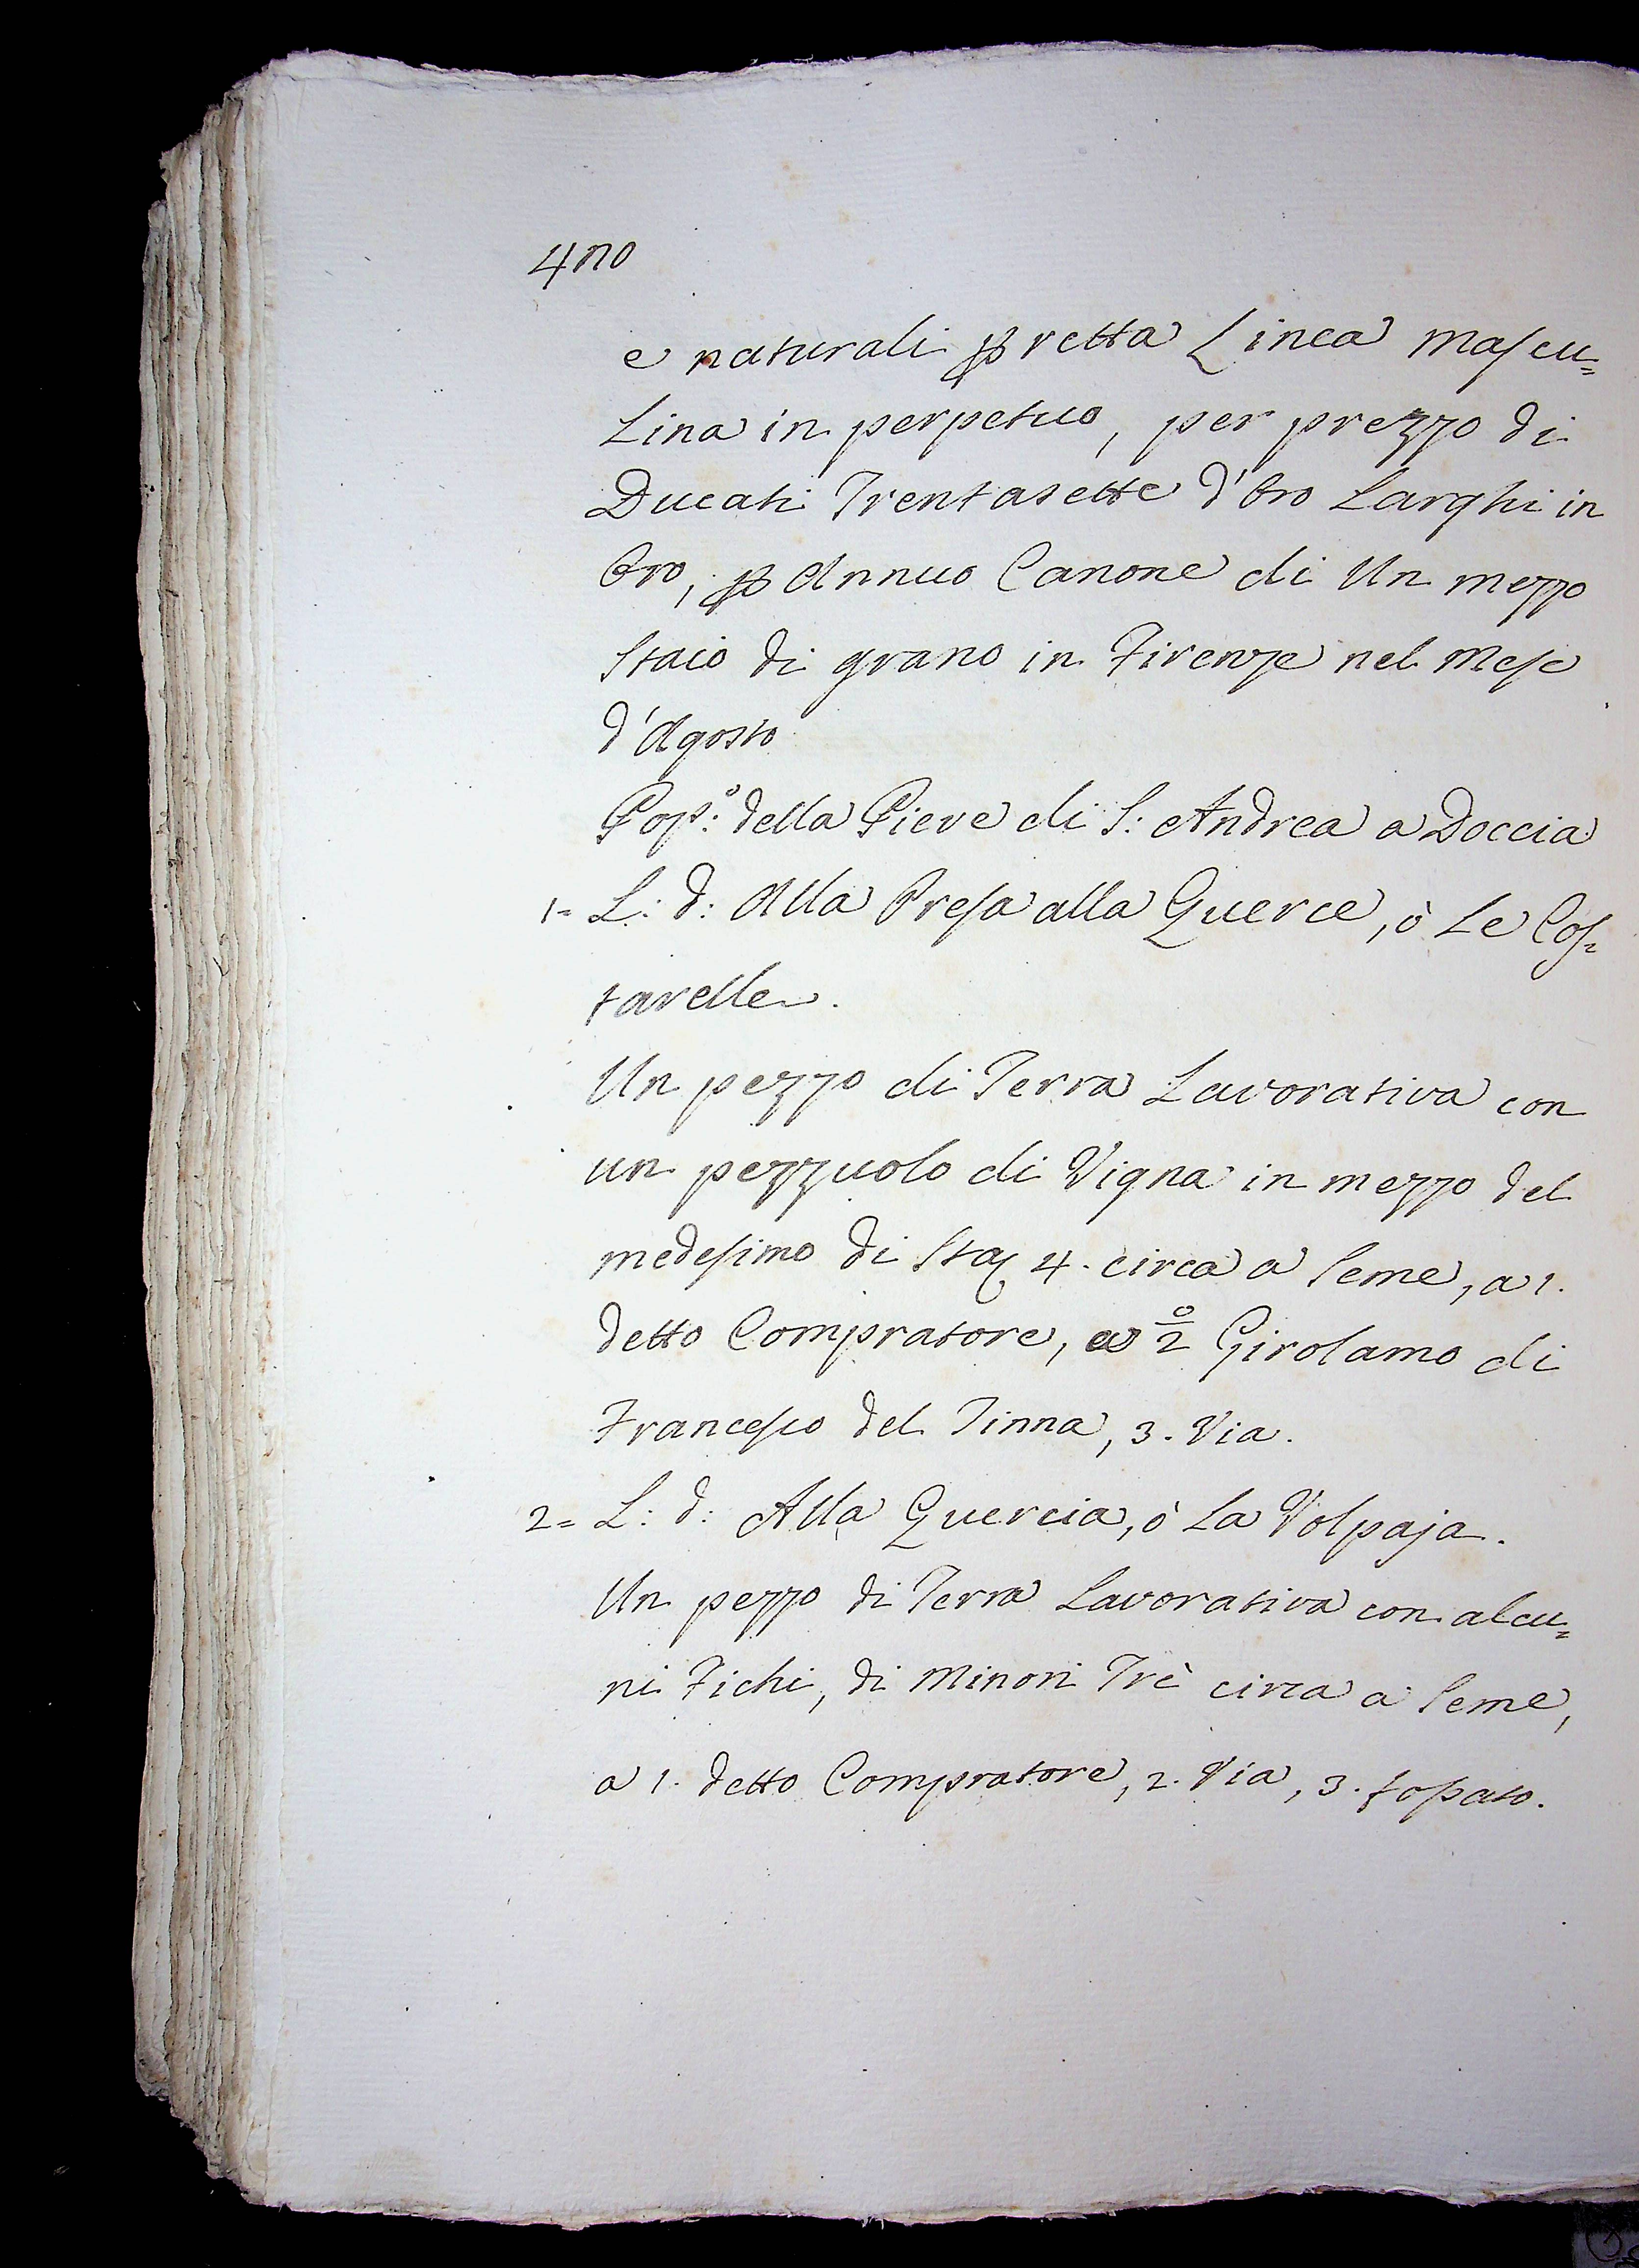 4no
e naturali p retta Linea mascu=
Lina in perpetuo, per prezzo di
Ducati Trentasette d'Oro Larghi in
Oro, p Annuo Canone di Un mezzo
Staio di grano in Firenze nel Mese
d'Agosto
Pop.º: della Pieve di S: Andrea a Doccia
1= L: d: Alla Presa alla Querce, ò Le Cos=
tarelle.
Un pezzo di Terra Lavorativa con
un pezzuolo di Vigna in mezzo del
medesimo di Sta 4. circa a Seme, a 1.
detto Compratore, a 2º Girolamo di
Francesco del Tinna, 3. Via.
2= L: d: Alla Quercia, ò La Volpaja.
Un pezzo di Terra Lavorativa con alcu=
ni Fichi, di Minori Trè circa a Seme,
a 1. detto Compratore, 2. Via, 3. fossato.